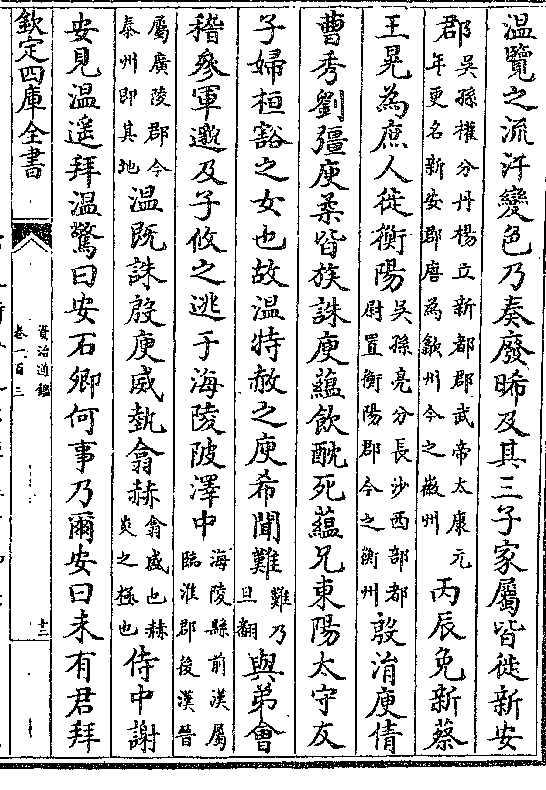 温覽之流汗變色乃奏廢晞及其三子家屬皆徙新安
郡吳孫權分丹楊立新都郡武帝太康元年更名新安郡唐為歙州今之徽州丙辰免新蔡
王晃為庶人徙衡陽吳孫亮分長沙西部都尉置衡陽郡今之衡州殷涓庾倩
曹秀劉彊庾柔皆族誅庾蘊飲酖死蘊兄東陽太守友
子婦桓豁之女也故温特赦之庾希聞難難乃旦翻與弟會
稽參軍邈及子攸之逃于海陵陂澤中海陵縣前漢屬臨淮郡後漢晉
屬廣陵郡今泰州即其地温既誅殷庾威埶翕赫翕盛也赫炎之極也侍中謝
安見温遥拜温驚曰安石卿何事乃爾安曰未有君拜
欽定四庫全書
資治通鑑
卷一百三
十三